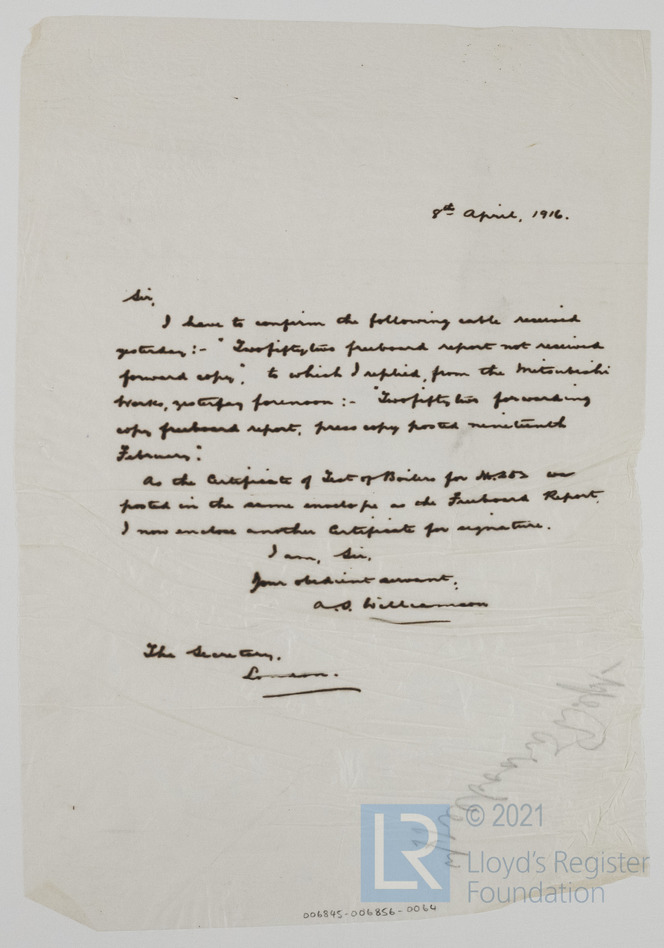 8th April, 1916.
Sir,
I have to confirm the following cable received
yesterday:- "Twofiftytwo freeboard report not received
forward copy", to which I replied, from the Mitsubishi
Works, yesterday forenoon:- "Twofiftytwo forwarding
copy freeboard report, press copy posted nineteenth
February".
As the Certificate of Test of Boilers for No. 252 was
posted in the same envelope as the Freeboard Report,
I now enclose another Certificate for signature.
I am, Sir,
Your obedient servant,
A.S. Williamson
The Secretary,
London.
LR
© 2021
Lloyd's Register
Foundation
006845-006856-0064